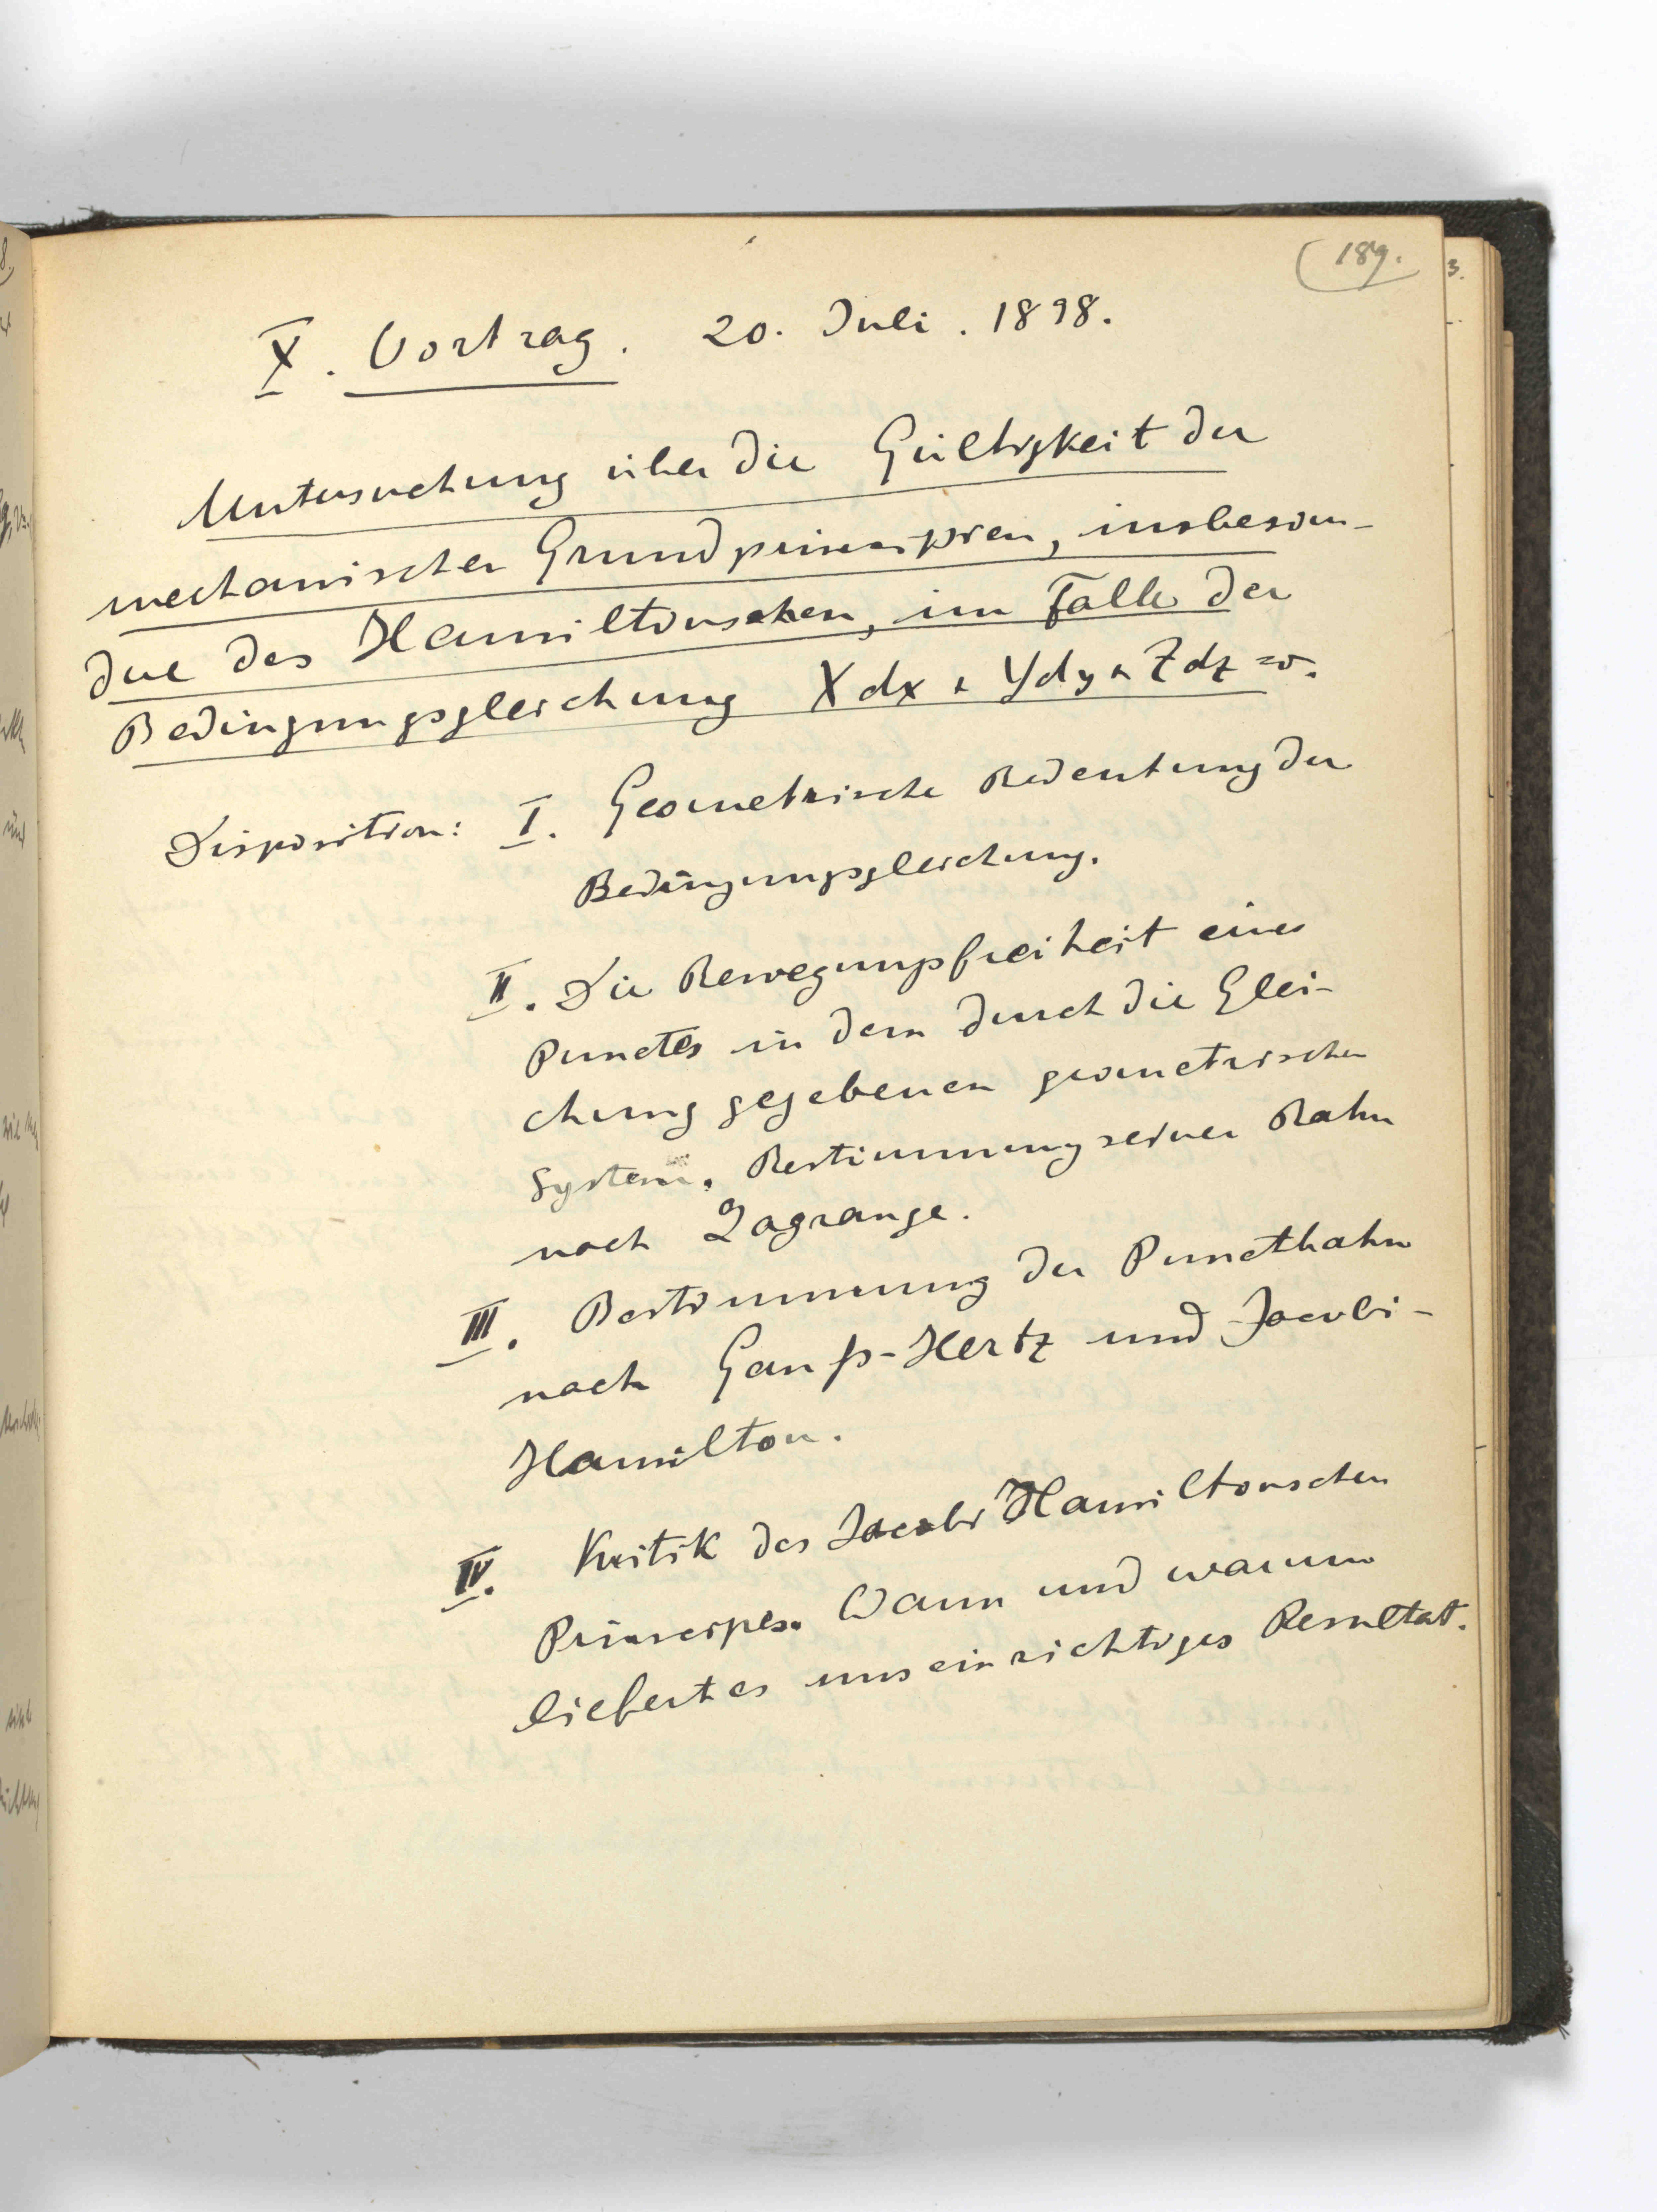 189.
X. Vortrag. 20. Juli. 1898.
Untersuchung über die Gültigkeit der
mechanischen Grundprincipien, insbeson-
dre des Hamiltonschen, im Falle der
Bedingungsgleichung Xdx + Ydy + Zdz = 0.
Disposition: I. Geometrische Bedeutung der
Bedingungsgleichung.
II. Die Bewegungsfreiheit eines
Punctes in dem durch die Glei-
chung gegebenen geometrischen
System. Bestimmung seiner Bahn
nach Lagrange.
III. Bestimmung der Punctbahn
nach Gauß-Hertz und Jacobi-
Hamilton.
IV. Kritik des Jacobi Hamiltonschen
Principes. Wann und warum
liefert es uns ein richtiges Resultat.